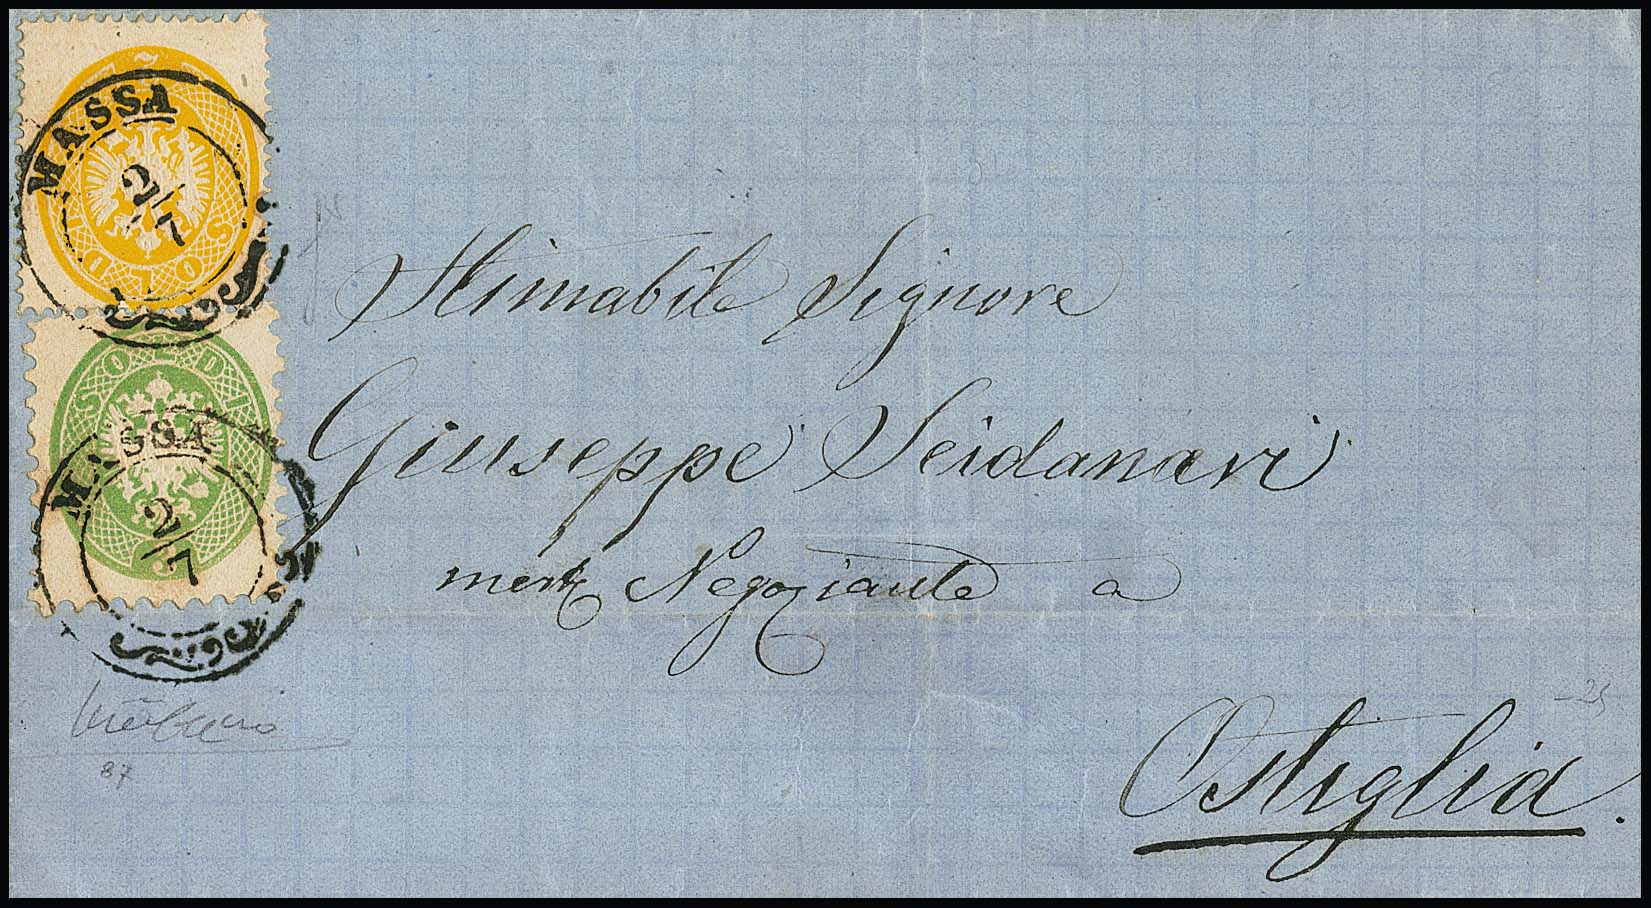 2 SOLDI
MASSA
2/7
SOLDI
MASSA
2/7
Stimabile Signore
Giuseppe Seidanari
Negoziante a
- 25
Ostiglia.
87